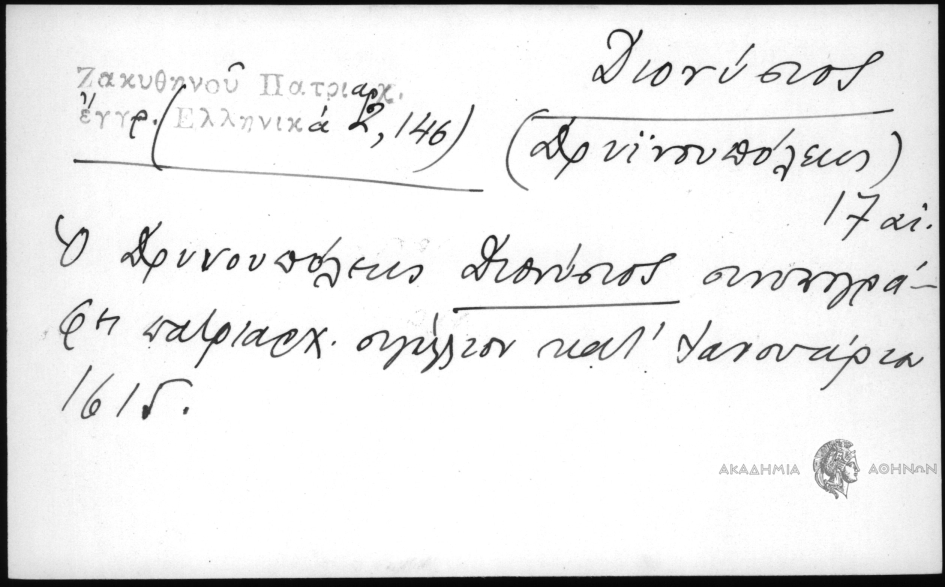 Ζακυθηνοῦ Πατριαρχ.
ἔγγρ. (Ἑλληνικά 2, 146)
Διονύσιος
(Δρυϊνουπόλεως)
17 αἰ.
Ὁ Δρυνουπόλεως Διονύσιος συνυπογρά-
φει πατριαρχ. σιγίλλιον κατ' Ἰανουάριον
1615.
ΑΚΑΔΗΜΙΑ ΑΘΗΝΩΝ